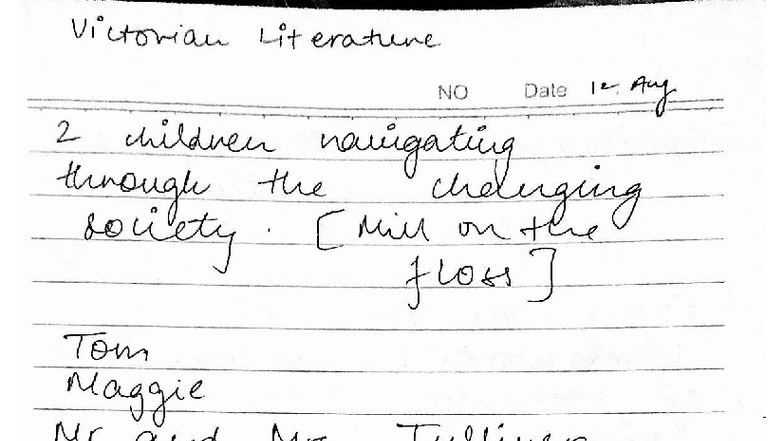 Victorian Literature
NO Date 12 Aug
2 children navigating
through the changing
society. [Mill on the
floss]
Tom
Maggie
Mr and Mrs Tulliver